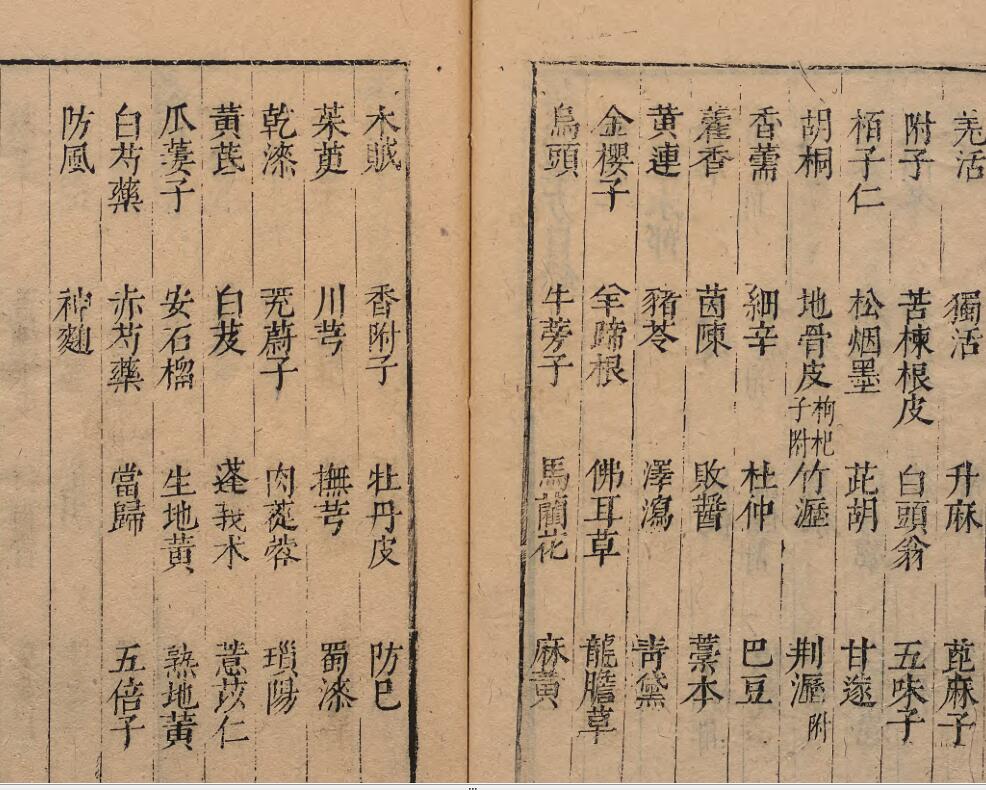 羌活 獨活 升麻 萞麻子
附子 苦楝根皮 白頭翁 五味子
栢子仁 松烟墨 茈胡 甘遂
胡桐 地骨皮枸杞子附 竹瀝 荆瀝附
香薷 細辛 杜仲 巴豆
藿香 茵陳 敗醬 藁本
黄連 豬苓 澤瀉 青黛
金櫻子 羊蹄根 佛耳草 龍膽草
烏頭 牛蒡子 馬藺花 麻黄
木賊 香附子 牡丹皮 防巳
茱萸 川芎 撫芎 蜀漆
乾漆 茺蔚子 肉蓯蓉 瑣陽
黄茋 白芨 蓬莪术 薏苡仁
瓜蔞子 安石榴 生地黄 熟地黄
白芍藥 赤芍藥 當歸 五倍子
防風 神麯